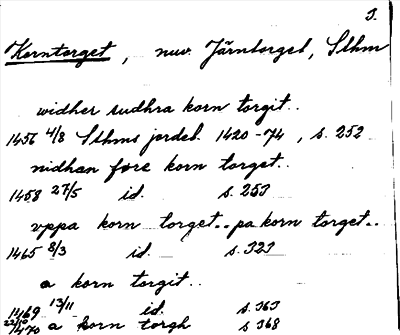 I.
Korntorget, nuv. Järntorget, Sthm
widher sudhra korn torgit..
1456 4/8 Sthms jordeb. 1420-74, s. 252
nidhan fore korn torget..
1458 27/5 id. s. 253
vppa korn torget.. pa korn torget..
1465 8/3 id. s. 323
a korn torgit..
1469 13/11 id. s. 363
22/10 1470 a korn torgh s 368